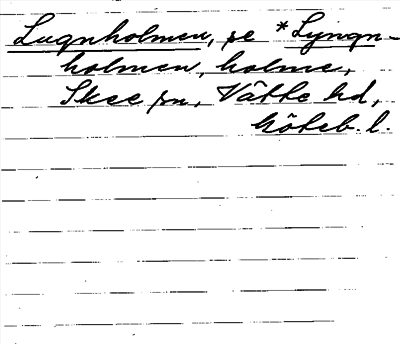 Lugnholmen, se *Lyngn-
holmen, holme,
Skee sn, Vätte hd,
Göteb. l.